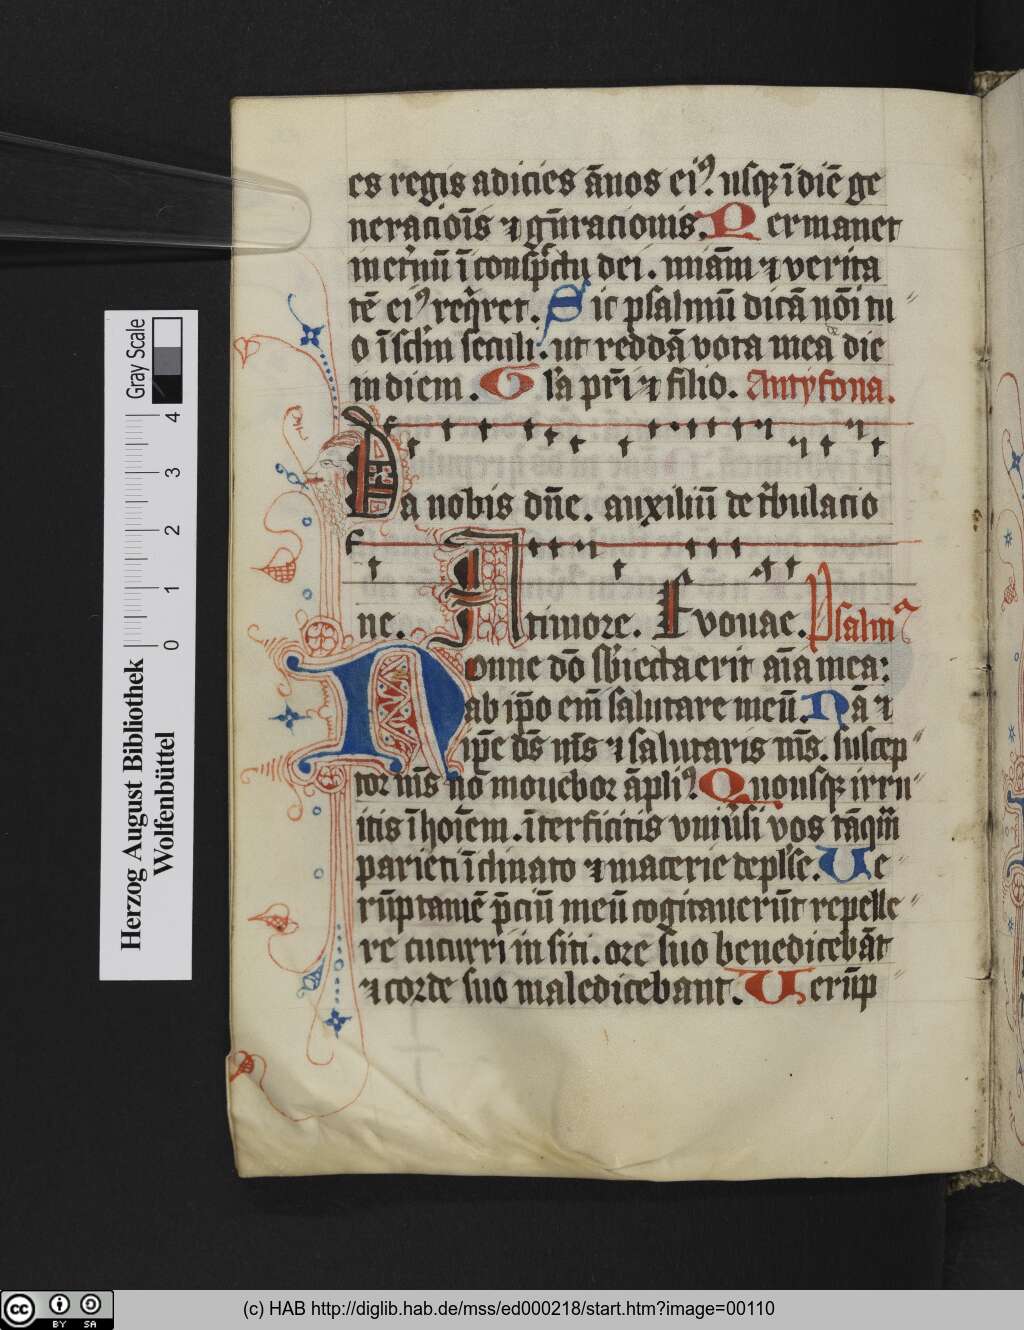 es regis adicies ãnos eiꝰ. usqꝫ ĩ diẽ ge
neracioĩs ⁊ gñracionis. Permanet
inet͛nũ ĩ consp̃ctu dei. miãm ⁊ verita
tẽ eiꝰ req̃ret. Sic psalmũ dicã nõi tu
o ĩ sc̃lm seculi. ut reddã vota mea die
in diem. Gl̃a pr̃i ⁊ filio. Antyfona.
Da nobis dñe. auxiliũ de t͛bulacio
ne. A timore. Evouae. Psalmꝰ
Nonne dõ sb̃iecta erit aĩa mea:
ab ip̃o em̃ salutare meũ. Nã ⁊
ip̃e ds̃ ms̃ ⁊ salutaris ms̃. suscep
tor ms̃ nõ mouebor ãpliꝰ. Quousqꝫ irru
itis ĩ hoĩem. ĩterficitis vniũsi vos tãqm̃
parieti ĩclinato ⁊ macerie depl̃se. Ue
rũptamẽ p̃ciũ meũ cogitauerũt repelle
re cucurri in siti. ore suo benedicebãt
⁊ corde suo maledicebant. Uerũp
Herzog August Bibliothek
Wolfenbüttel
Gray Scale
0 1 2 3 4
cc BY SA
(c) HAB http://diglib.hab.de/mss/ed000218/start.htm?image=00110